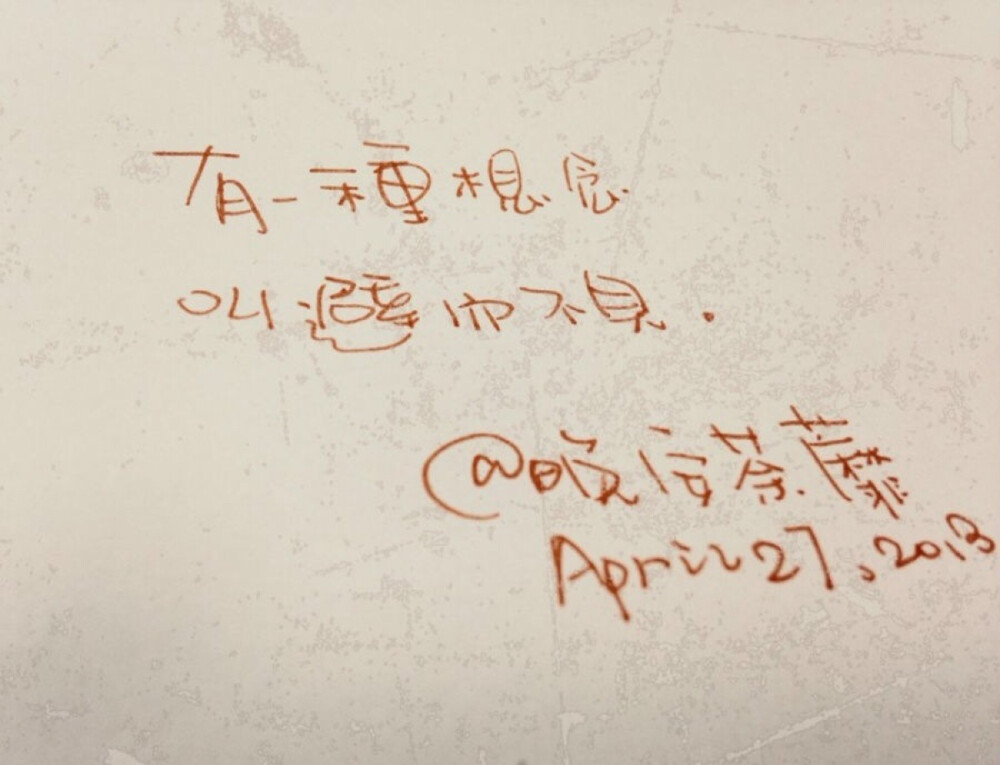 有一種想念
叫避而不見.
@晚安荼蘼
April 27, 2013